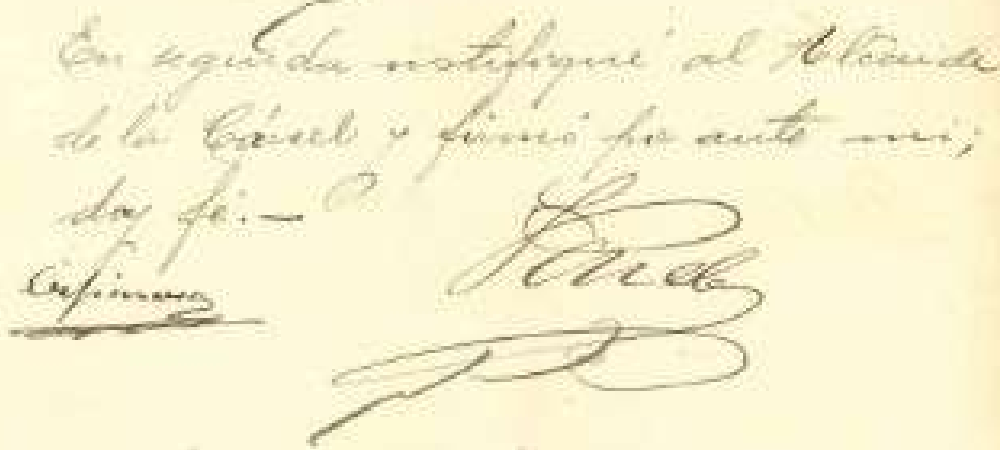 En seguida notifiqué al Alcaide
de la Cárcel y firmó por ante mi;
doy fé.—
Espinosa